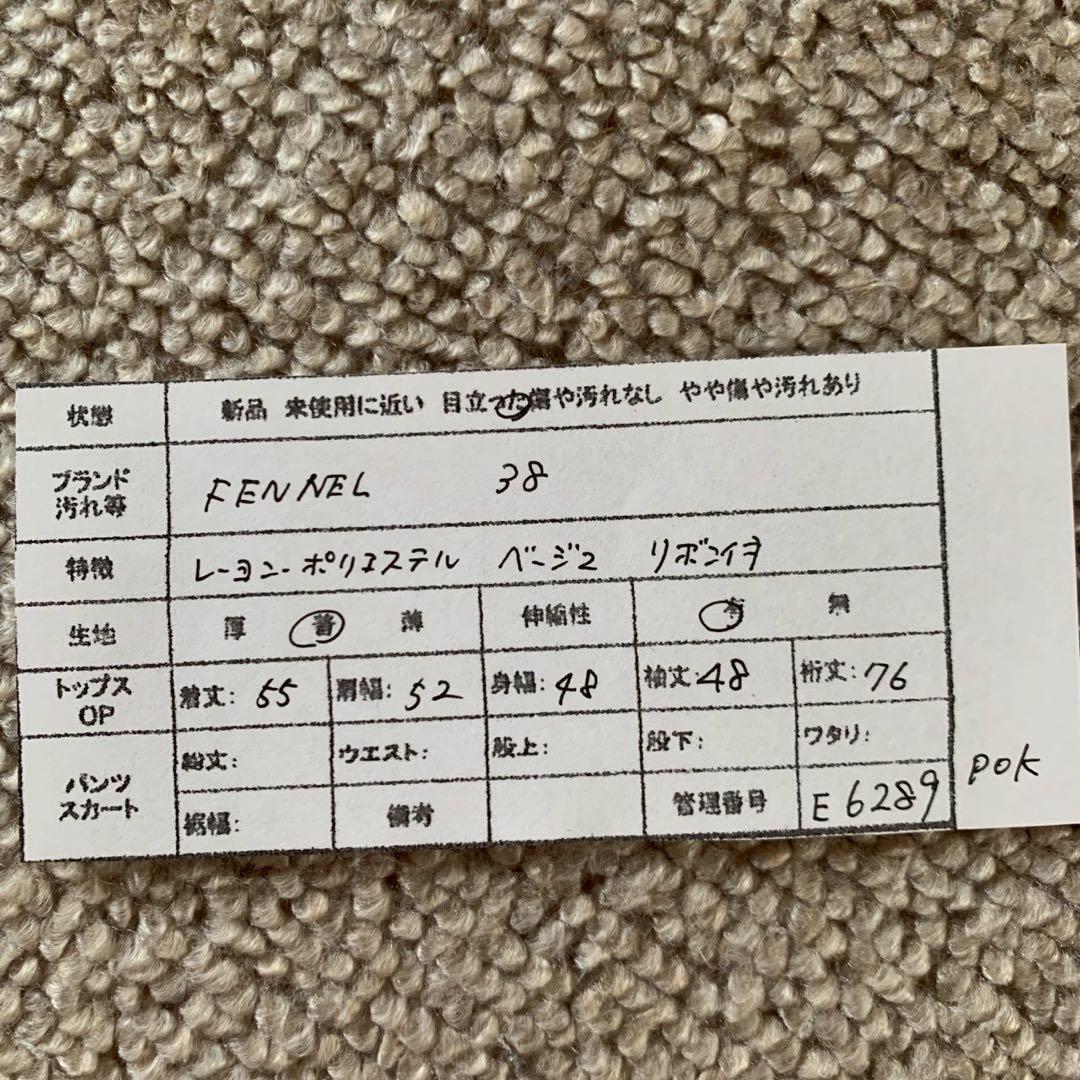 状態 新品 未使用に近い 目立った傷や汚れなし やや傷や汚れあり
ブランド
汚れ等
FENNEL 38
特徴 レーヨン・ポリエステル ベージュ リボン付き
生地 厚 普 薄 伸縮性 有 無
トップス
OP
着丈: 55 肩幅: 52 身幅: 48 袖丈: 48 裄丈: 76
パンツ
スカート
総丈: ウエスト: 股上: 股下: ワタリ:
裾幅: 備考 管理番号 E6289
pok